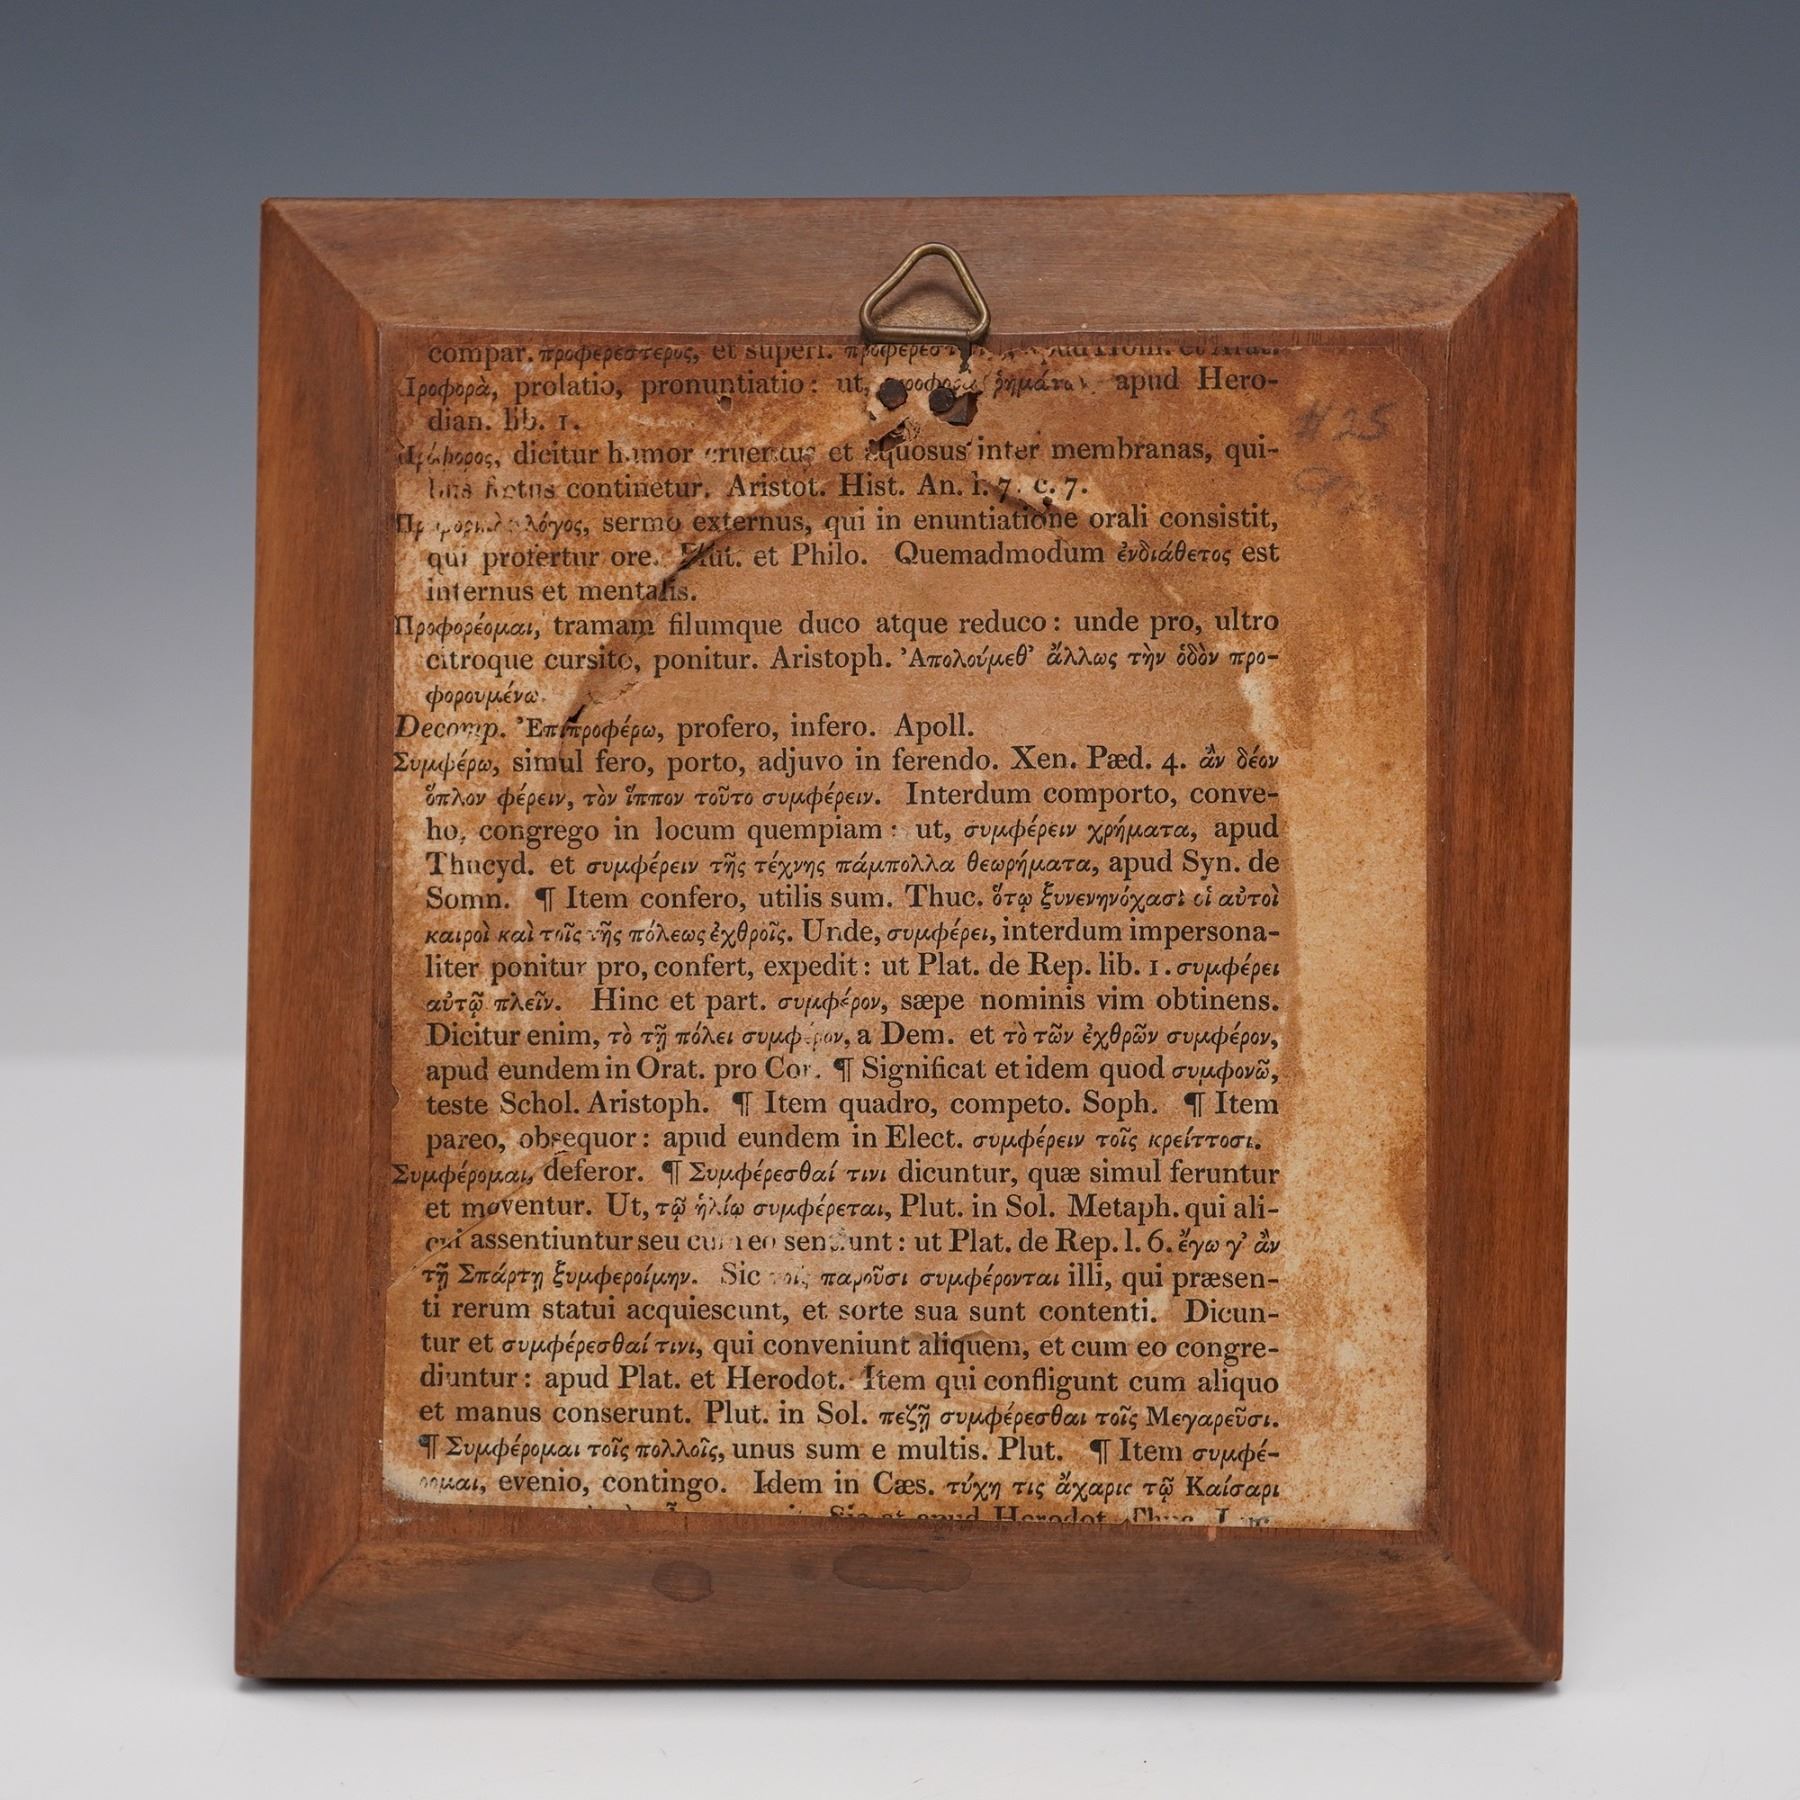 compar. προφερέστερος, et superl.
Προφορὰ, prolatio, pronuntiatio: ut, apud Hero-
dian. lib. 1.
#25
dicitur humor cruentus et aquosus inter membranas, qui-
bus fœtus continetur. Aristot. Hist. An. l. 7. c. 7.
λόγος, sermo externus, qui in enuntiatione orali consistit,
qui profertur ore. Plut. et Philo. Quemadmodum ἐνδιάθετος est
internus et mentalis.
Προφορέομαι, tramam filumque duco atque reduco: unde pro, ultro
citroque cursito, ponitur. Aristoph. Ἀπολούμεθ' ἄλλως τὴν ὁδὸν προ-
φορουμένω.
Decomp. Ἐπιπροφέρω, profero, infero. Apoll.
Συμφέρω, simul fero, porto, adjuvo in ferendo. Xen. Pæd. 4. ἂν δέον
ὅπλον φέρειν, τὸν ἵππον τοῦτο συμφέρειν. Interdum comporto, conve-
ho, congrego in locum quempiam: ut, συμφέρειν χρήματα, apud
Thucyd. et συμφέρειν τῆς τέχνης πάμπολλα θεωρήματα, apud Syn. de
Somn. ¶ Item confero, utilis sum. Thuc. ὅτῳ ξυνενηνόχασι οἱ αὐτοὶ
καιροὶ καὶ τοῖς τῆς πόλεως ἐχθροῖς. Unde, συμφέρει, interdum impersona-
liter ponitur pro, confert, expedit: ut Plat. de Rep. lib. 1. συμφέρει
αὐτῷ πλεῖν. Hinc et part. συμφέρον, sæpe nominis vim obtinens.
Dicitur enim, τὸ τῇ πόλει συμφέρον, a Dem. et τὸ τῶν ἐχθρῶν συμφέρον,
apud eundem in Orat. pro Cor. ¶ Significat et idem quod συμφονῶ,
teste Schol. Aristoph. ¶ Item quadro, competo. Soph. ¶ Item
pareo, obsequor: apud eundem in Elect. συμφέρειν τοῖς κρείττοσι.
Συμφέρομαι, deferor. ¶ Συμφέρεσθαί τινι dicuntur, quæ simul feruntur
et moventur. Ut, τῷ ἡλίῳ συμφέρεται, Plut. in Sol. Metaph. qui ali-
cui assentiuntur seu cum eo sentiunt: ut Plat. de Rep. l. 6. ἔγω γ' ἂν
τῇ Σπάρτῃ ξυμφεροίμην. Sic τοῖς παροῦσι συμφέρονται illi, qui præsen-
ti rerum statui acquiescunt, et sorte sua sunt contenti. Dicun-
tur et συμφέρεσθαί τινι, qui conveniunt aliquem, et cum eo congre-
diuntur: apud Plat. et Herodot. Item qui confligunt cum aliquo
et manus conserunt. Plut. in Sol. πεζῇ συμφέρεσθαι τοῖς Μεγαρεῦσι.
¶ Συμφέρομαι τοῖς πολλοῖς, unus sum e multis. Plut. ¶ Item συμφέ-
ρομαι, evenio, contingo. Idem in Cæs. τύχη τις ἄχαρις τῷ Καίσαρι
Sic et apud Herodot. Thuc.